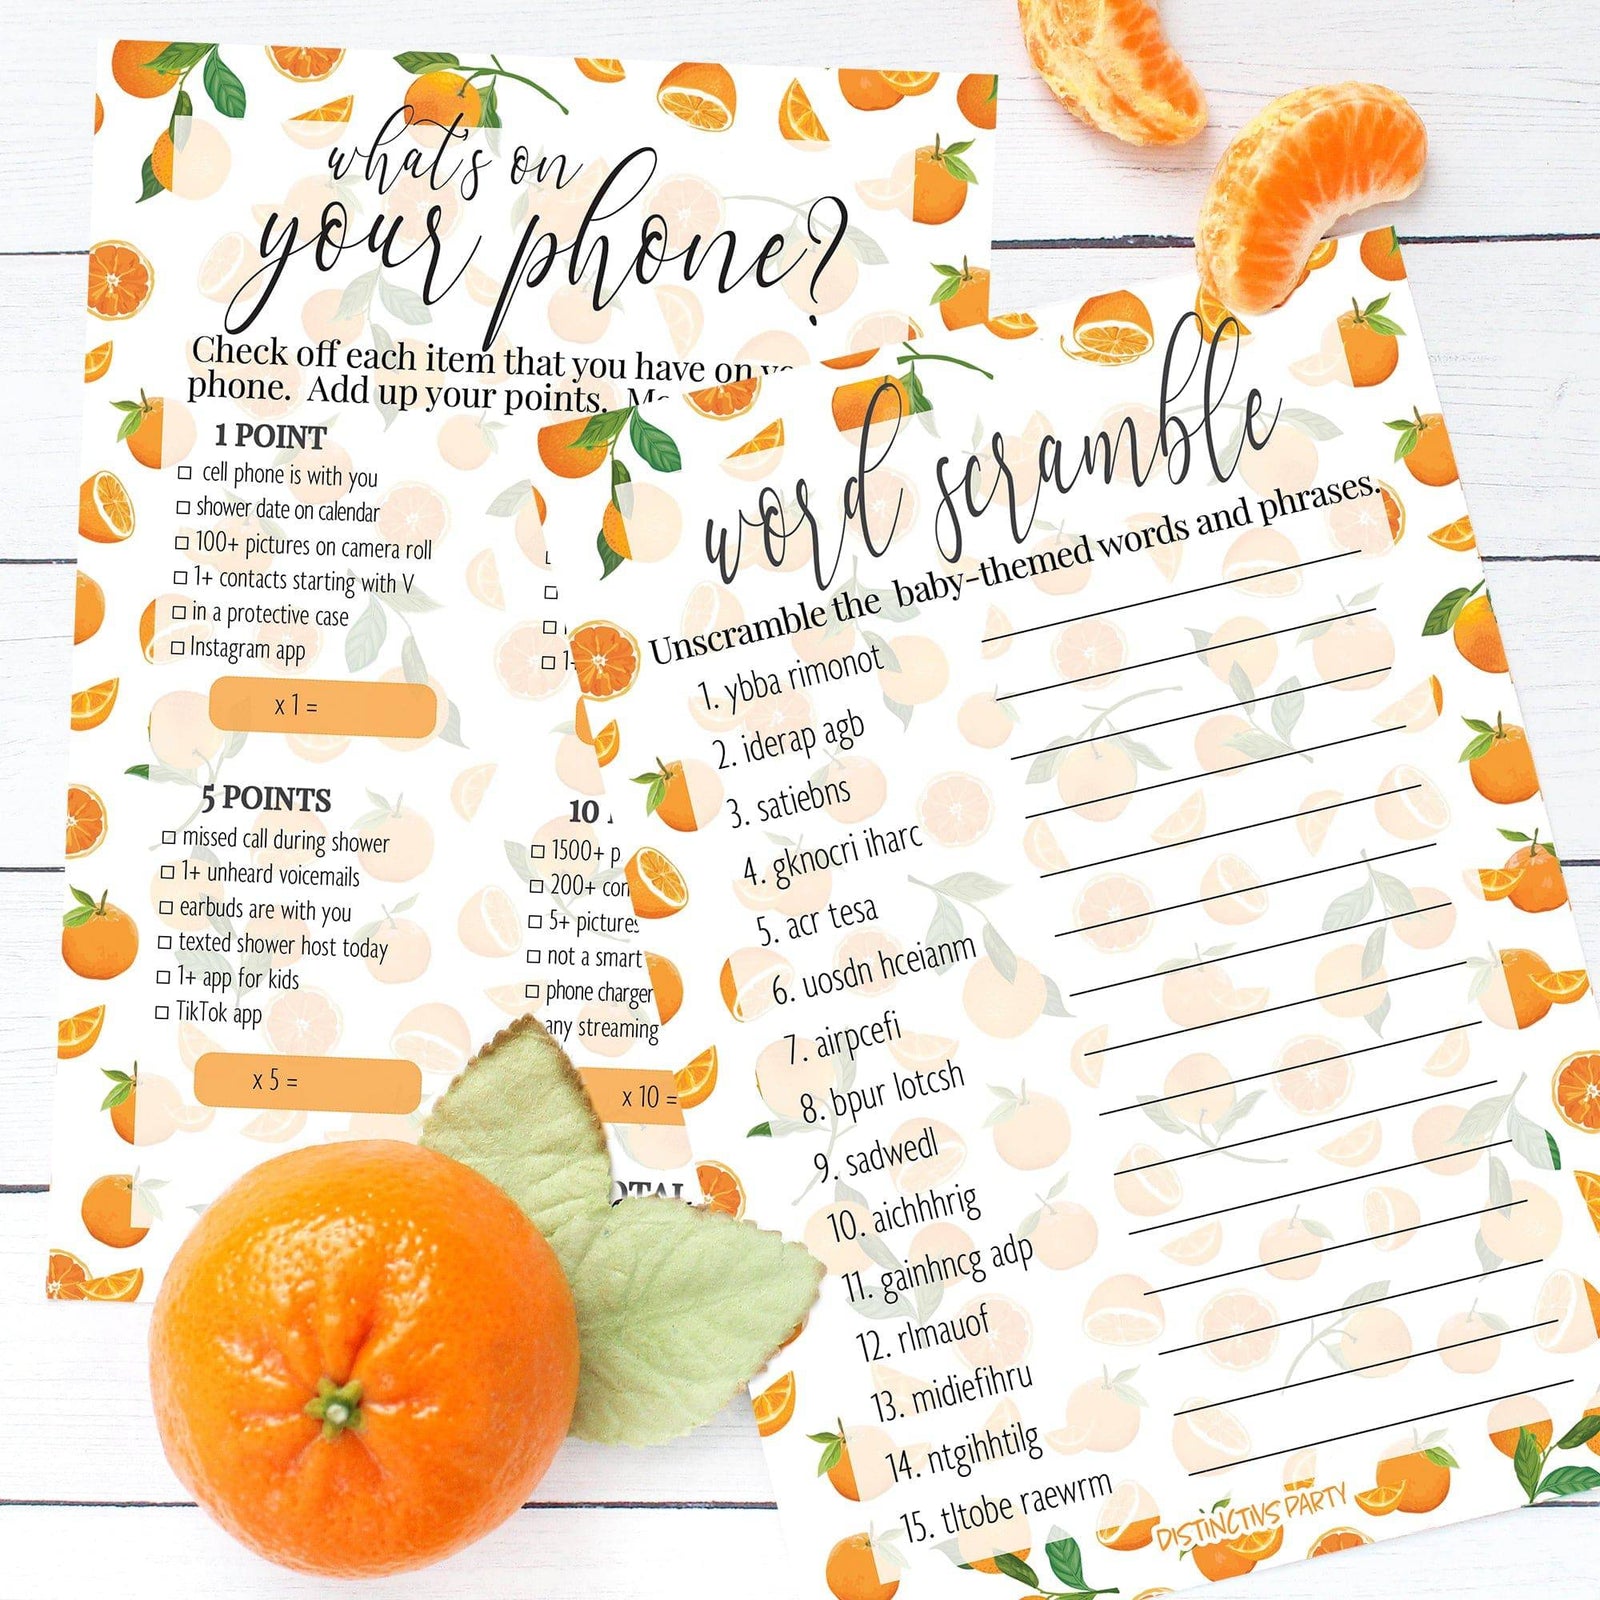 what's on
your phone?
Check off each item that you have on
phone. Add up your points.
1 POINT
cell phone is with you
shower date on calendar
100+ pictures on camera roll
1+ contacts starting with V
in a protective case
Instagram app
x 1 =
5 POINTS
missed call during shower
1+ unheard voicemails
earbuds are with you
texted shower host today
1+ app for kids
TikTok app
x 5 =
10
1500+
200+
5+ pictures
not a smart
phone charger
any streaming
x 10 =
word scramble
Unscramble the baby-themed words and phrases.
1. ybba rimonot
2. iderap agb
3. satiebns
4. gknocri iharc
5. acr tesa
6. uosdn hceianm
7. airpcefi
8. bpur lotcsh
9. sadwedl
10. aichhhrig
11. gainhncg adp
12. rlmauof
13. midiefihru
14. ntgihhtilg
15. tltobe raewrm
DISTINCTIVS PARTY